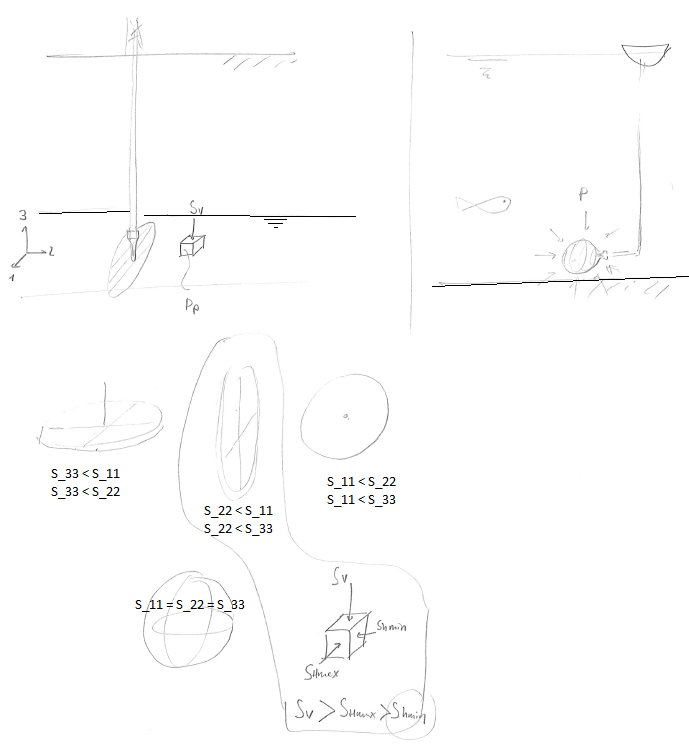 3
2
1
Sv
Pp
P
S_33 < S_11
S_33 < S_22
S_22 < S_11
S_22 < S_33
S_11 < S_22
S_11 < S_33
S_11 = S_22 = S_33
Sv
Shmin
SHmax
Sv > SHmax > Shmin